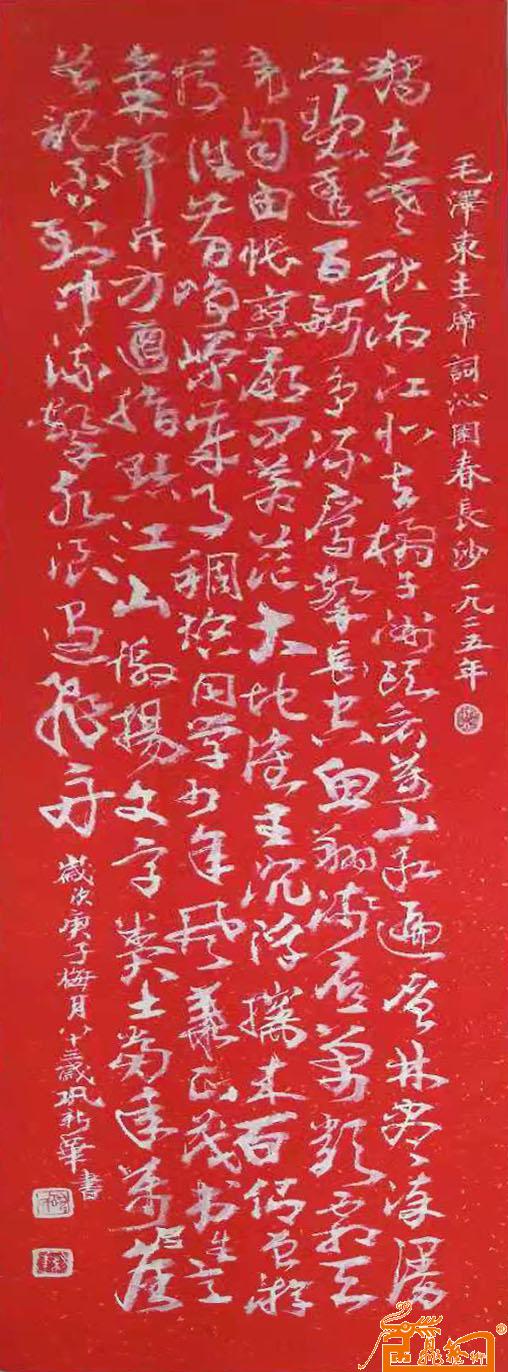 毛澤東主席詞沁園春長沙一九二五年
獨立寒秋湘江北去橘子洲頭看萬山紅遍層林盡染漫
江碧透百舸爭流鷹擊長空魚翔淺底萬類霜天
竞自由悵寥廓問蒼茫大地誰主沉浮攜來百侶曾游
憶往昔崢嶸歲月稠恰同學少年風華正茂書生意
氣揮斥方遒指點江山激揚文字糞土當年萬户侯
曾記否到中流擊水浪遏飛舟
歲次庚子梅月八十三歲巩華書